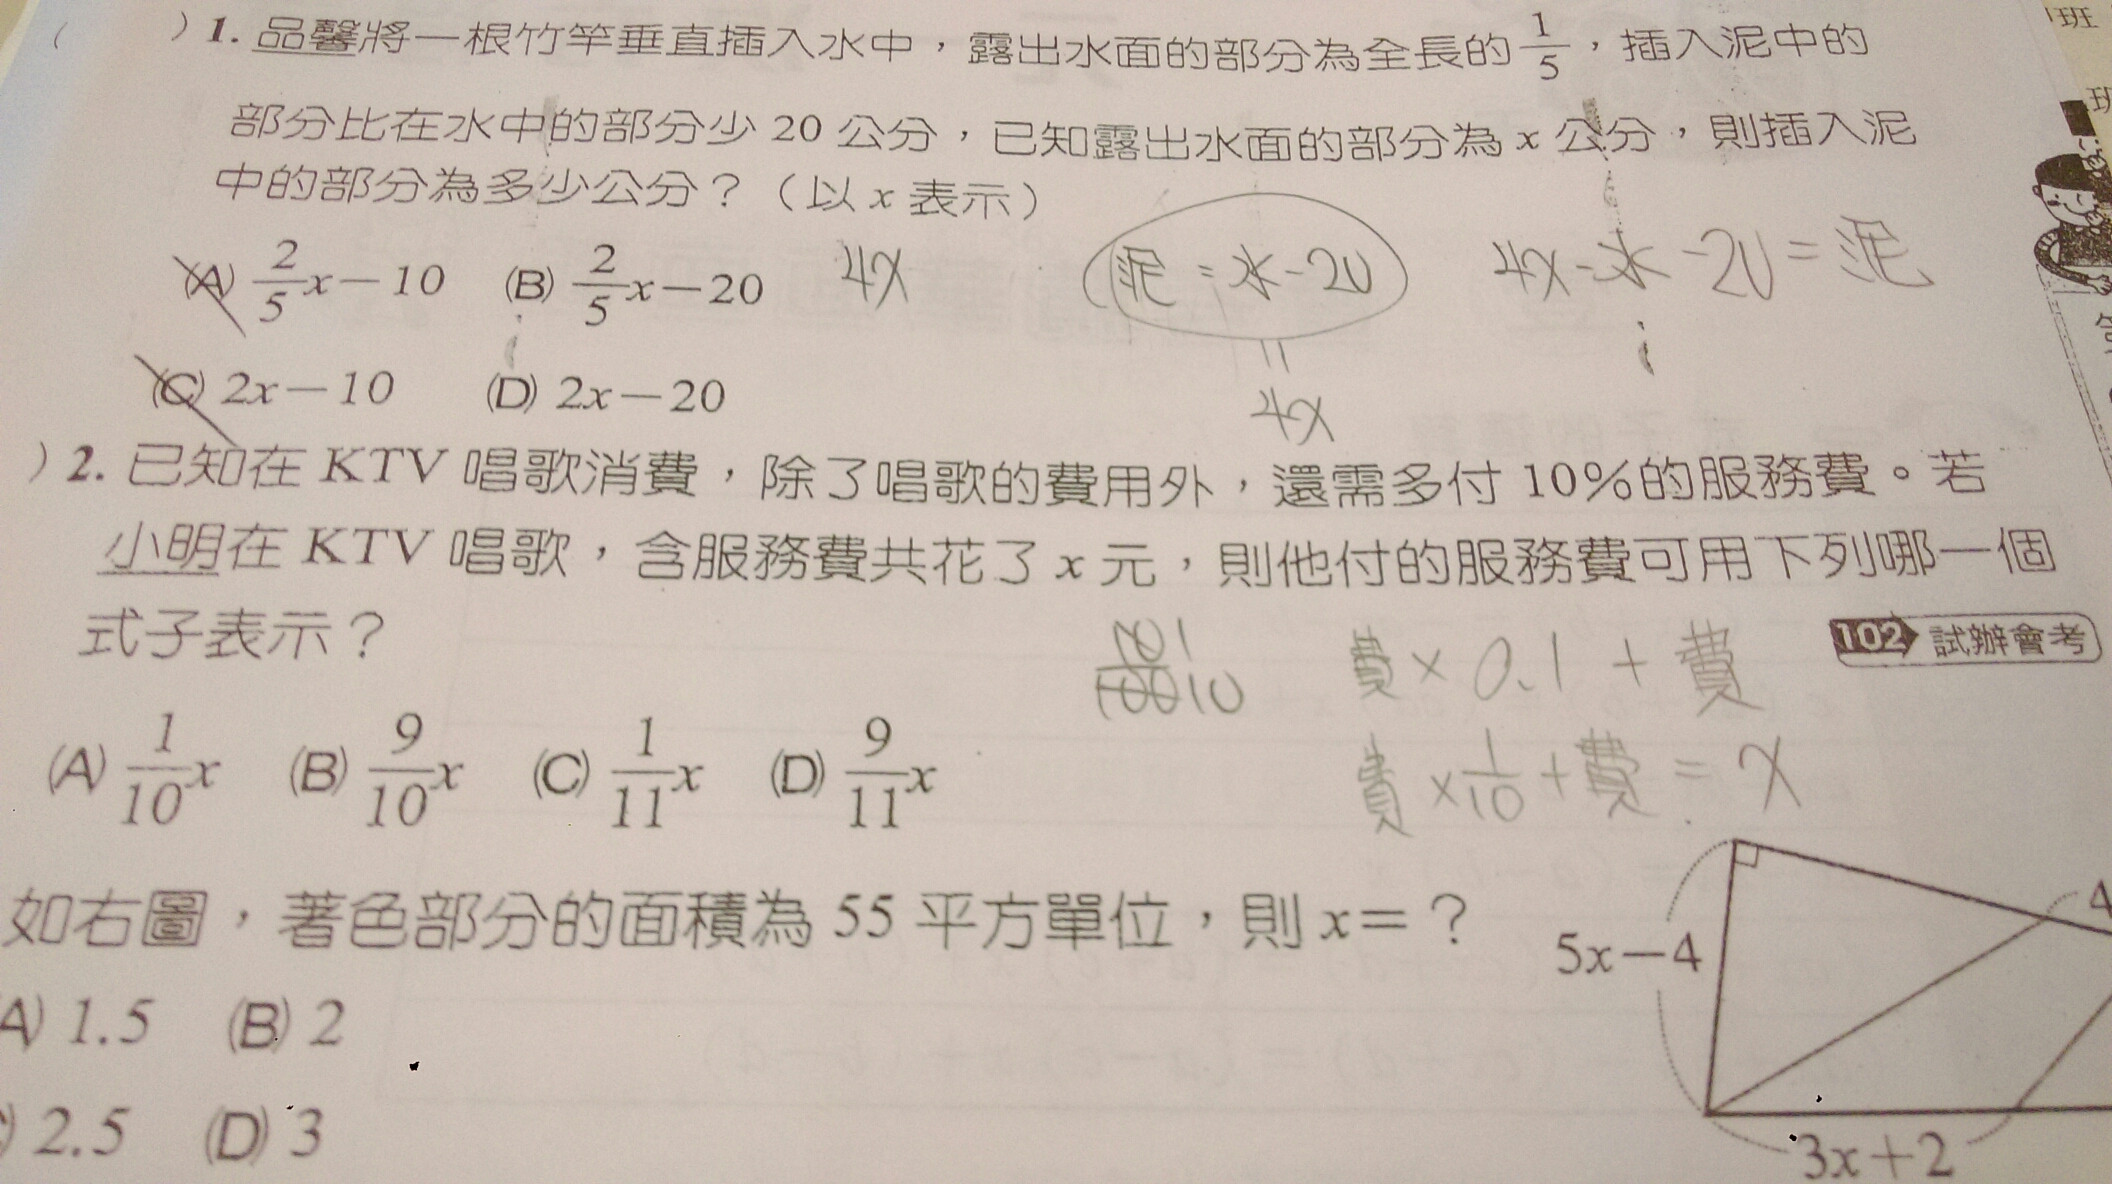 ( ) 1. 品馨將一根竹竿垂直插入水中，露出水面的部分為全長的 1/5，插入泥中的
部分比在水中的部分少 20 公分，已知露出水面的部分為 x 公分，則插入泥
中的部分為多少公分？（以 x 表示）
(A) 2/5 x－10 (B) 2/5 x－20
4x
泥 = 水 - 20
4x - 水 - 20 = 泥
(C) 2x－10 (D) 2x－20
=
4x
) 2. 已知在 KTV 唱歌消費，除了唱歌的費用外，還需多付 10％的服務費。若
小明在 KTV 唱歌，含服務費共花了 x 元，則他付的服務費可用下列哪一個
式子表示？
102 試辦會考
費 × 0.1 + 費
(A) 1/10 x (B) 9/10 x (C) 1/11 x (D) 9/11 x
費 × 1/10 + 費 = x
如右圖，著色部分的面積為 55 平方單位，則 x＝？
5x－4
4
A) 1.5 (B) 2
) 2.5 (D) 3
3x＋2
班
班